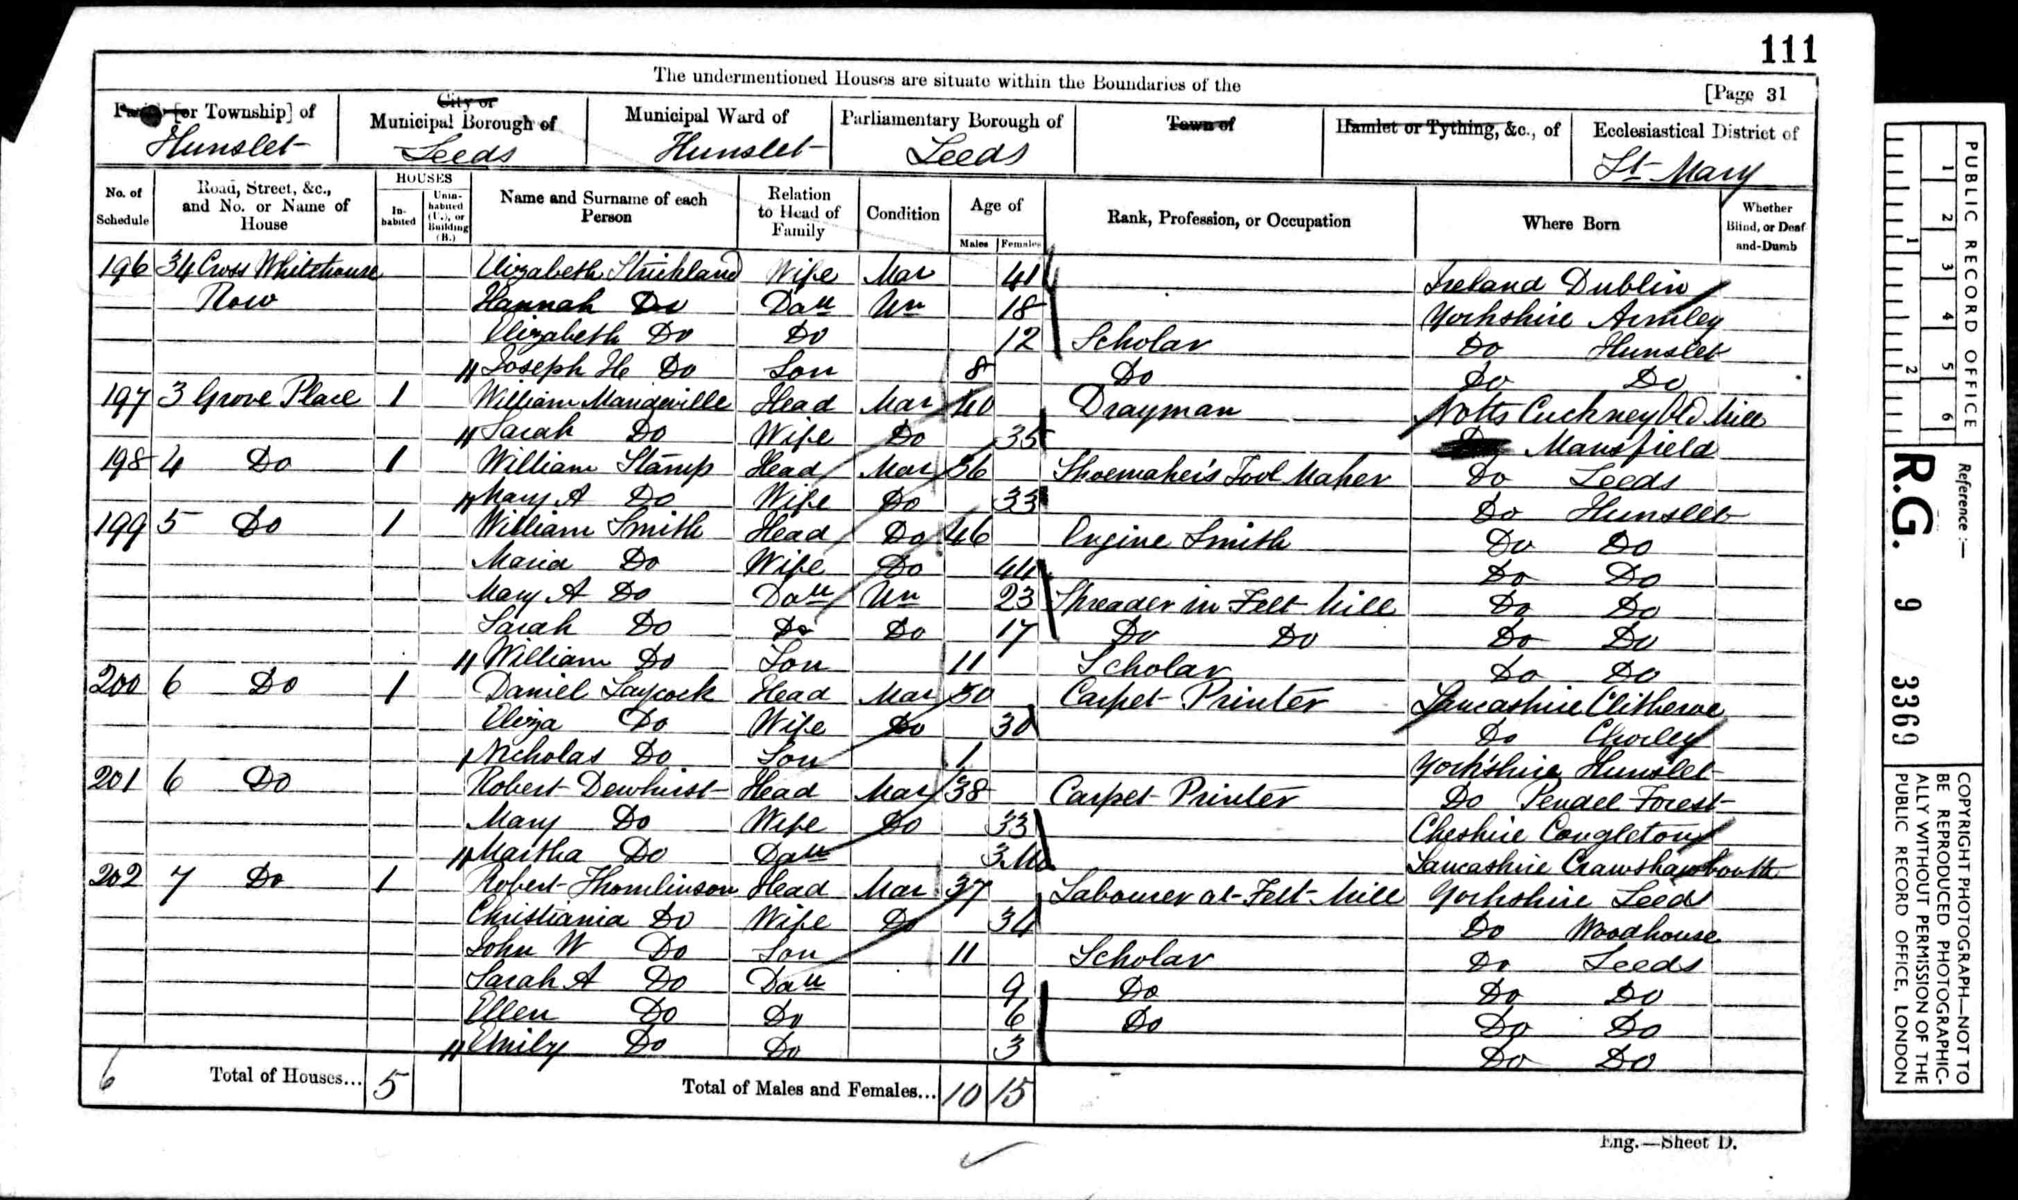 111
The undermentioned Houses are situate within the Boundaries of the
[Page 31
Parish [or Township] of
City or Municipal Borough of
Municipal Ward of
Parliamentary Borough of
Town of
Hamlet or Tything, &c., of
Ecclesiastical District of
Hunslet
Leeds
Hunslet
Leeds
St Mary
No. of Schedule
Road, Street, &c., and No. or Name of House
HOUSES
In-habited
Unin-habited (U.), or Building (B.)
Name and Surname of each Person
Relation to Head of Family
Condition
Age of
Males
Females
Rank, Profession, or Occupation
Where Born
Whether Blind, or Deaf-and-Dumb
196 34 Cross Whitehouse Elizabeth Strickland Wife Mar 41 Ireland Dublin
Row Hannah Do Daur Un 18 Yorkshire Armley
Elizabeth Do Do 12 Scholar Do Hunslet
Joseph H Do Son 8 Do Do Do
197 3 Grove Place 1 William Mandeville Head Mar 40 Drayman Notts Cuckney Old Mill
Sarah Do Wife Do 35 Do Mansfield
198 4 Do 1 William Stamp Head Mar 36 Shoemaker's Tool Maker Do Leeds
Mary A Do Wife Do 33 Do Hunslet
199 5 Do 1 William Smith Head Do 46 Engine Smith Do Do
Maria Do Wife Do 44 Do Do
Mary A Do Daur Un 23 Threader in Felt Mill Do Do
Sarah Do Do Do 17 Do Do Do Do
William Do Son 11 Scholar Do Do
200 6 Do 1 Daniel Laycock Head Mar 30 Carpet Printer Lancashire Clitheroe
Eliza Do Wife Do 30 Do Chorley
Nicholas Do Son 1 Yorkshire Hunslet
201 6 Do Robert Dewhirst Head Mar 38 Carpet Printer Do Pendel Forest
Mary Do Wife Do 33 Cheshire Congleton
Martha Do Daur 3 Mo Lancashire Crawshawbooth
202 7 Do 1 Robert Thomlinson Head Mar 37 Labourer at Felt Mill Yorkshire Leeds
Christiania Do Wife Do 34 Do Woodhouse
John W Do Son 11 Scholar Do Leeds
Sarah A Do Daur 9 Do Do Do
Ellen Do Do 6 Do Do Do
Emily Do Do 3 Do Do
6 Total of Houses... 5 Total of Males and Females... 10 15
Eng.—Sheet D.
1 2 3 4 5 6
1 2
PUBLIC RECORD OFFICE
Reference :—
R.G. 9 3369
COPYRIGHT PHOTOGRAPH—NOT TO
BE REPRODUCED PHOTOGRAPHIC-
ALLY WITHOUT PERMISSION OF THE
PUBLIC RECORD OFFICE, LONDON